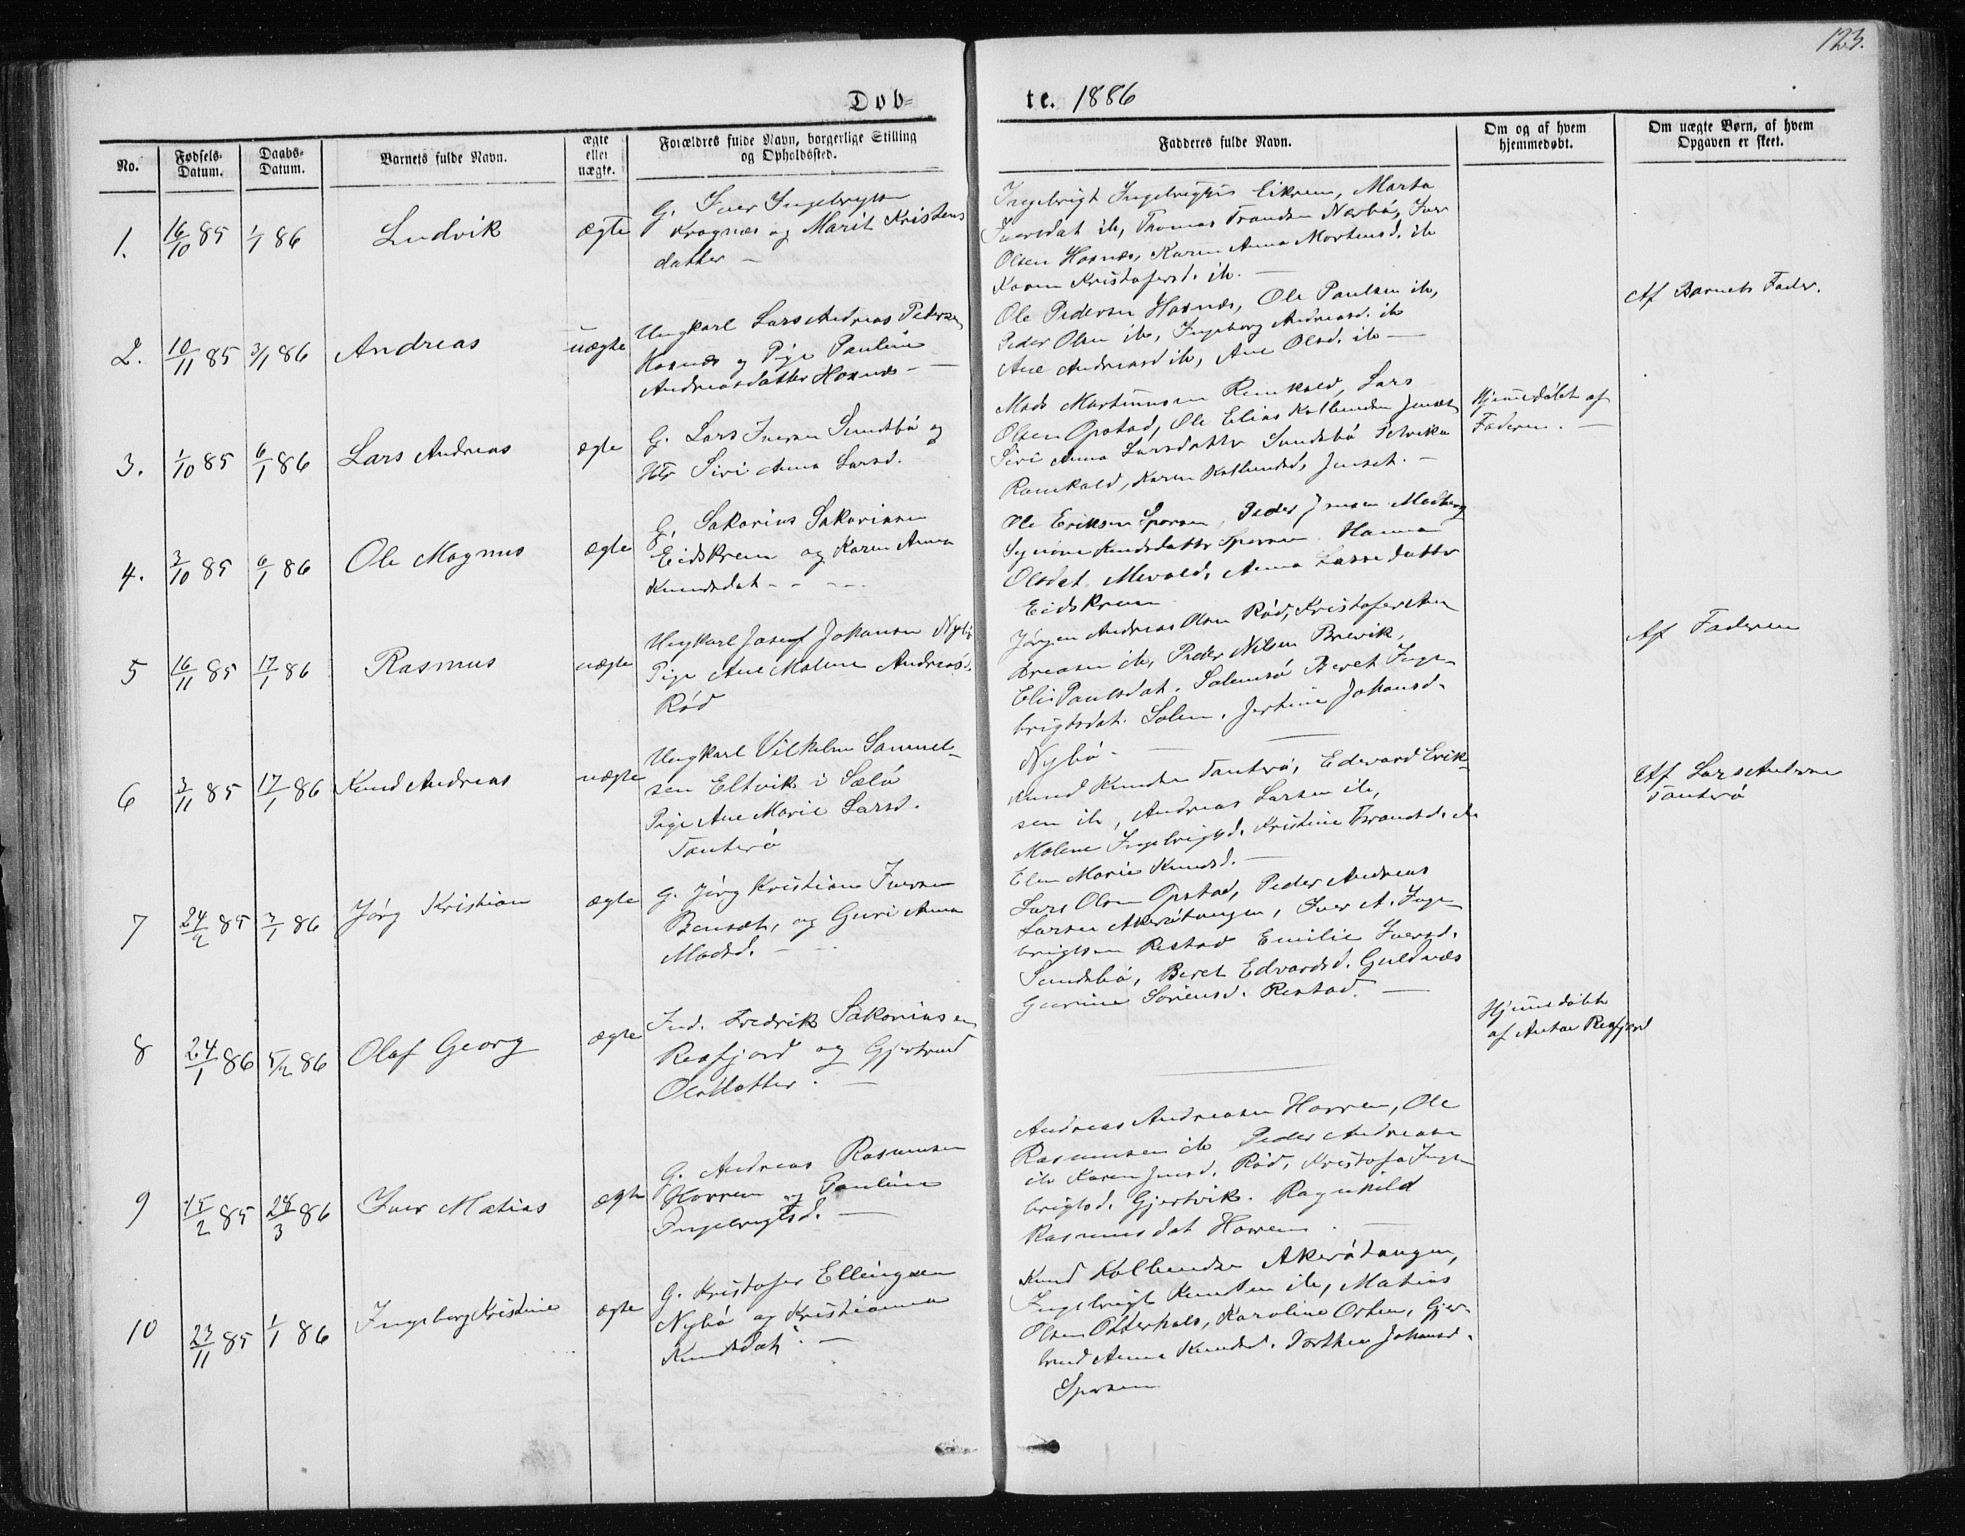 123.
Døb- te. 1886
No.
Fødsels-
Datum.
Daabs-
Datum.
Barnets fulde Navn.
ægte
eller
uægte.
Forældres fulde Navn, borgerlige Stilling
og Opholdssted.
Fadderes fulde Navn.
Om og af hvem
hjemmedøbt.
Om uægte Børn, af hvem
Opgaven er skeet.
1. 16/10 85 1/1 86 Ludvik ægte
G. Iver Ingebrigtsen
Kragnæs og Marit Kristens
datter —
Ingebrigt Ingebrigtsen Eikrem, Marta
Iversdat ib, Thomas Trondsen Nerbø, Iver
Olsen Hasnæs, Karen Anna Mortensd. ib
Karen Kristofersd. ib. —
2. 10/11 85 3/1 86 Andreas uægte
Ungkarl Lars Andreas Pedersen
Hasnæs og Pige Pauline
Andreasdatter Hasnæs —
Ole Pedersen Hasnæs, Ole Paulsen ib,
Peder Olsen ib, Ingeborg Andreasd. ib
Ane Andreasd ib, Ane Olsd. ib —
Af Barnets Fader.
3. 1/10 85 6/1 86 Lars Andreas ægte
G. Lars Iversen Sundsbø og
Hr Siri Anna Larsd.
Mads Martinussen Remkald, Lars
Olsen Opstad, Ole Elias Kolbensen Jenset
Siri Anna Larsdatter Sundsbø
Karen Kolbensd, Jenset. —
Hjemmedøbt af
Faderen. —
4. 3/10 85 6/1 86 Ole Magnus ægte
G. Sakarias Sakariasen
Eidskrem og Karen Anna
Knudsdat - - - -
Ole Eriksen Sporsem, Peder Jensen
Synøve Knudsdatter Sporsem, Hanna
Olsdat. Mevold, Anna Lassedatter
Eidskrem
5 16/11 85 17/1 86 Rasmus uægte
Ungkarl Josef Johansen Nybø
Pige Ane Malene Andreasd.
Rød
Jørgen Andreas Olsen Rød, Kristofer An
dreasen ib, Peder Nilsen Brevik,
Eli Paulsdat. Solemsø Beret Inge-
brigtsdat. Solem, Jertine Johansd.
Nybø —
Af Faderen
6 3/11 85 17/1 86 Knud Andreas uægte
Ungkarl Vilhelm Samuel-
sen Eltvik i Sælø
Pige Ane Marie Larsd.
Tauterø
Knud Knudsen Tauterø, Edevard Erik-
sen ib, Andreas Larsen ib,
Malene Ingebrigtsd. Kristine Trondsd. ib
Elen Marie Knudsd. —
Af Lars Andersen
Tauterø
7 24/2 85 3/1 86 Jørg Kristian ægte
G. Jørg Kristian Iversen
Bensæt, og Guri Anna
Madsd. —
Lars Olsen Opstad, Peder Andreas
Larsen Akerøtangen, Iver A. Inge-
brigtsen Restad Emilie Iversd.
Sundsbø, Beret Edvardsd. Guldnæs
Gurine Sørensd. Restad. —
8 24/1 86 5/2 86 Olaf Georg ægte
Ind. Fredrik Sakariasen
Ræfjord og Gjertrud
Olsdatter. —
Hjemmedøbt
af Anton Ræfjord
9 15/2 85 28/3 86 Iver Matias ægte
G. Andreas Rasmusen
Horrem og Pauline
Ingebrigtsd. —
Andreas Andreasen Horrem, Ole
Rasmusen ib Peder Andreasen
ib Karen Jensd. Rød, Kristofa Inge-
brigtsd. Gjertvik. Ragnhild
Rasmusdat Horrem. —
10 23/11 85 1/1 86 Ingeborg Kristine ægte
G. Kristofer Ellingsen
Nybø og Kristianna
Knudsdat. —
Knud Kolbensen Akerøtangen,
Ingebrigt Knudsen ib, Matias
Olsen Otterhals, Karoline Orten, Gjer-
trud Anna Knudsd. Dorthea Johansd.
Sporsem